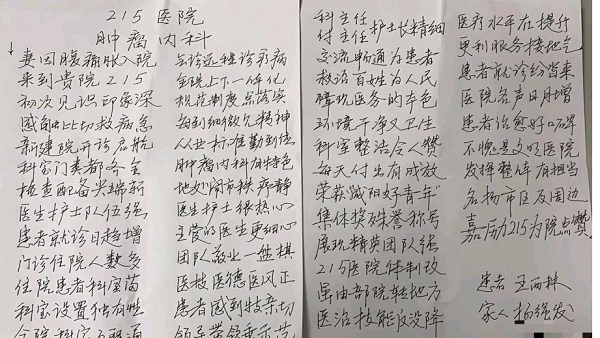 215医院
肿瘤内科
妻因腹痛收入院
来到贵院215
初次见识印象深
感触比切救病急
新建院开诊启航
科室门类都齐全
检查配备尖端新
医生护士队伍强
患者就诊日趋增
门诊住院人数多
住院患者科室满
科室设置独有性
会诊远程诊引病
全院上下一体化
规范制度总落实
每到细微欠精神
从业标准勤到位
肿瘤内科有特色
地处闹市环病静
医生护士很热心
主管的医生更细心
团队敬业一盘棋
医技医德医风正
患者感到特亲切
领导带领垂示范
科主任
付主任护士长精细
交流畅通为患者
救治百姓为人民
体现医务的本色
环境干净又卫生
科室整洁令人赞
每天付出有成效
荣获咸阳好青年
集体奖殊誉称号
展现精英团队强
215医院体制改
虽由部院转地方
医治技能没没降
医疗水平在提升
更利服务接地气
患者就诊纷沓来
医院名声日月增
患者治愈好口碑
不愧是文明医院
发挥整体有担当
名扬市区及周边
嘉励215为院点赞。
患者 王西林
家人 杨锋发